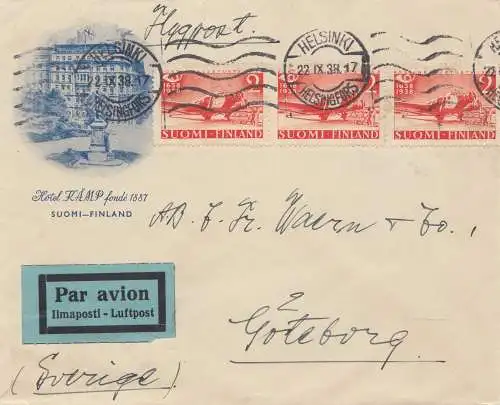 Flygpost.
HELSINKI
22.IX.38.17
HELSINGFORS
HELSINKI
22.IX.38.17
HELSINGFORS
2
1638
1938
SUOMI-FINLAND
2
1638
1938
SUOMI-FINLAND
2
1638
1938
SUOMI-FINLAND
Hôtel KÄMP fondé 1887
SUOMI–FINLAND
AB. F. Fr. Waern & Co.
Par avion
Ilmaposti - Luftpost
2
Göteborg.
(Sverige)